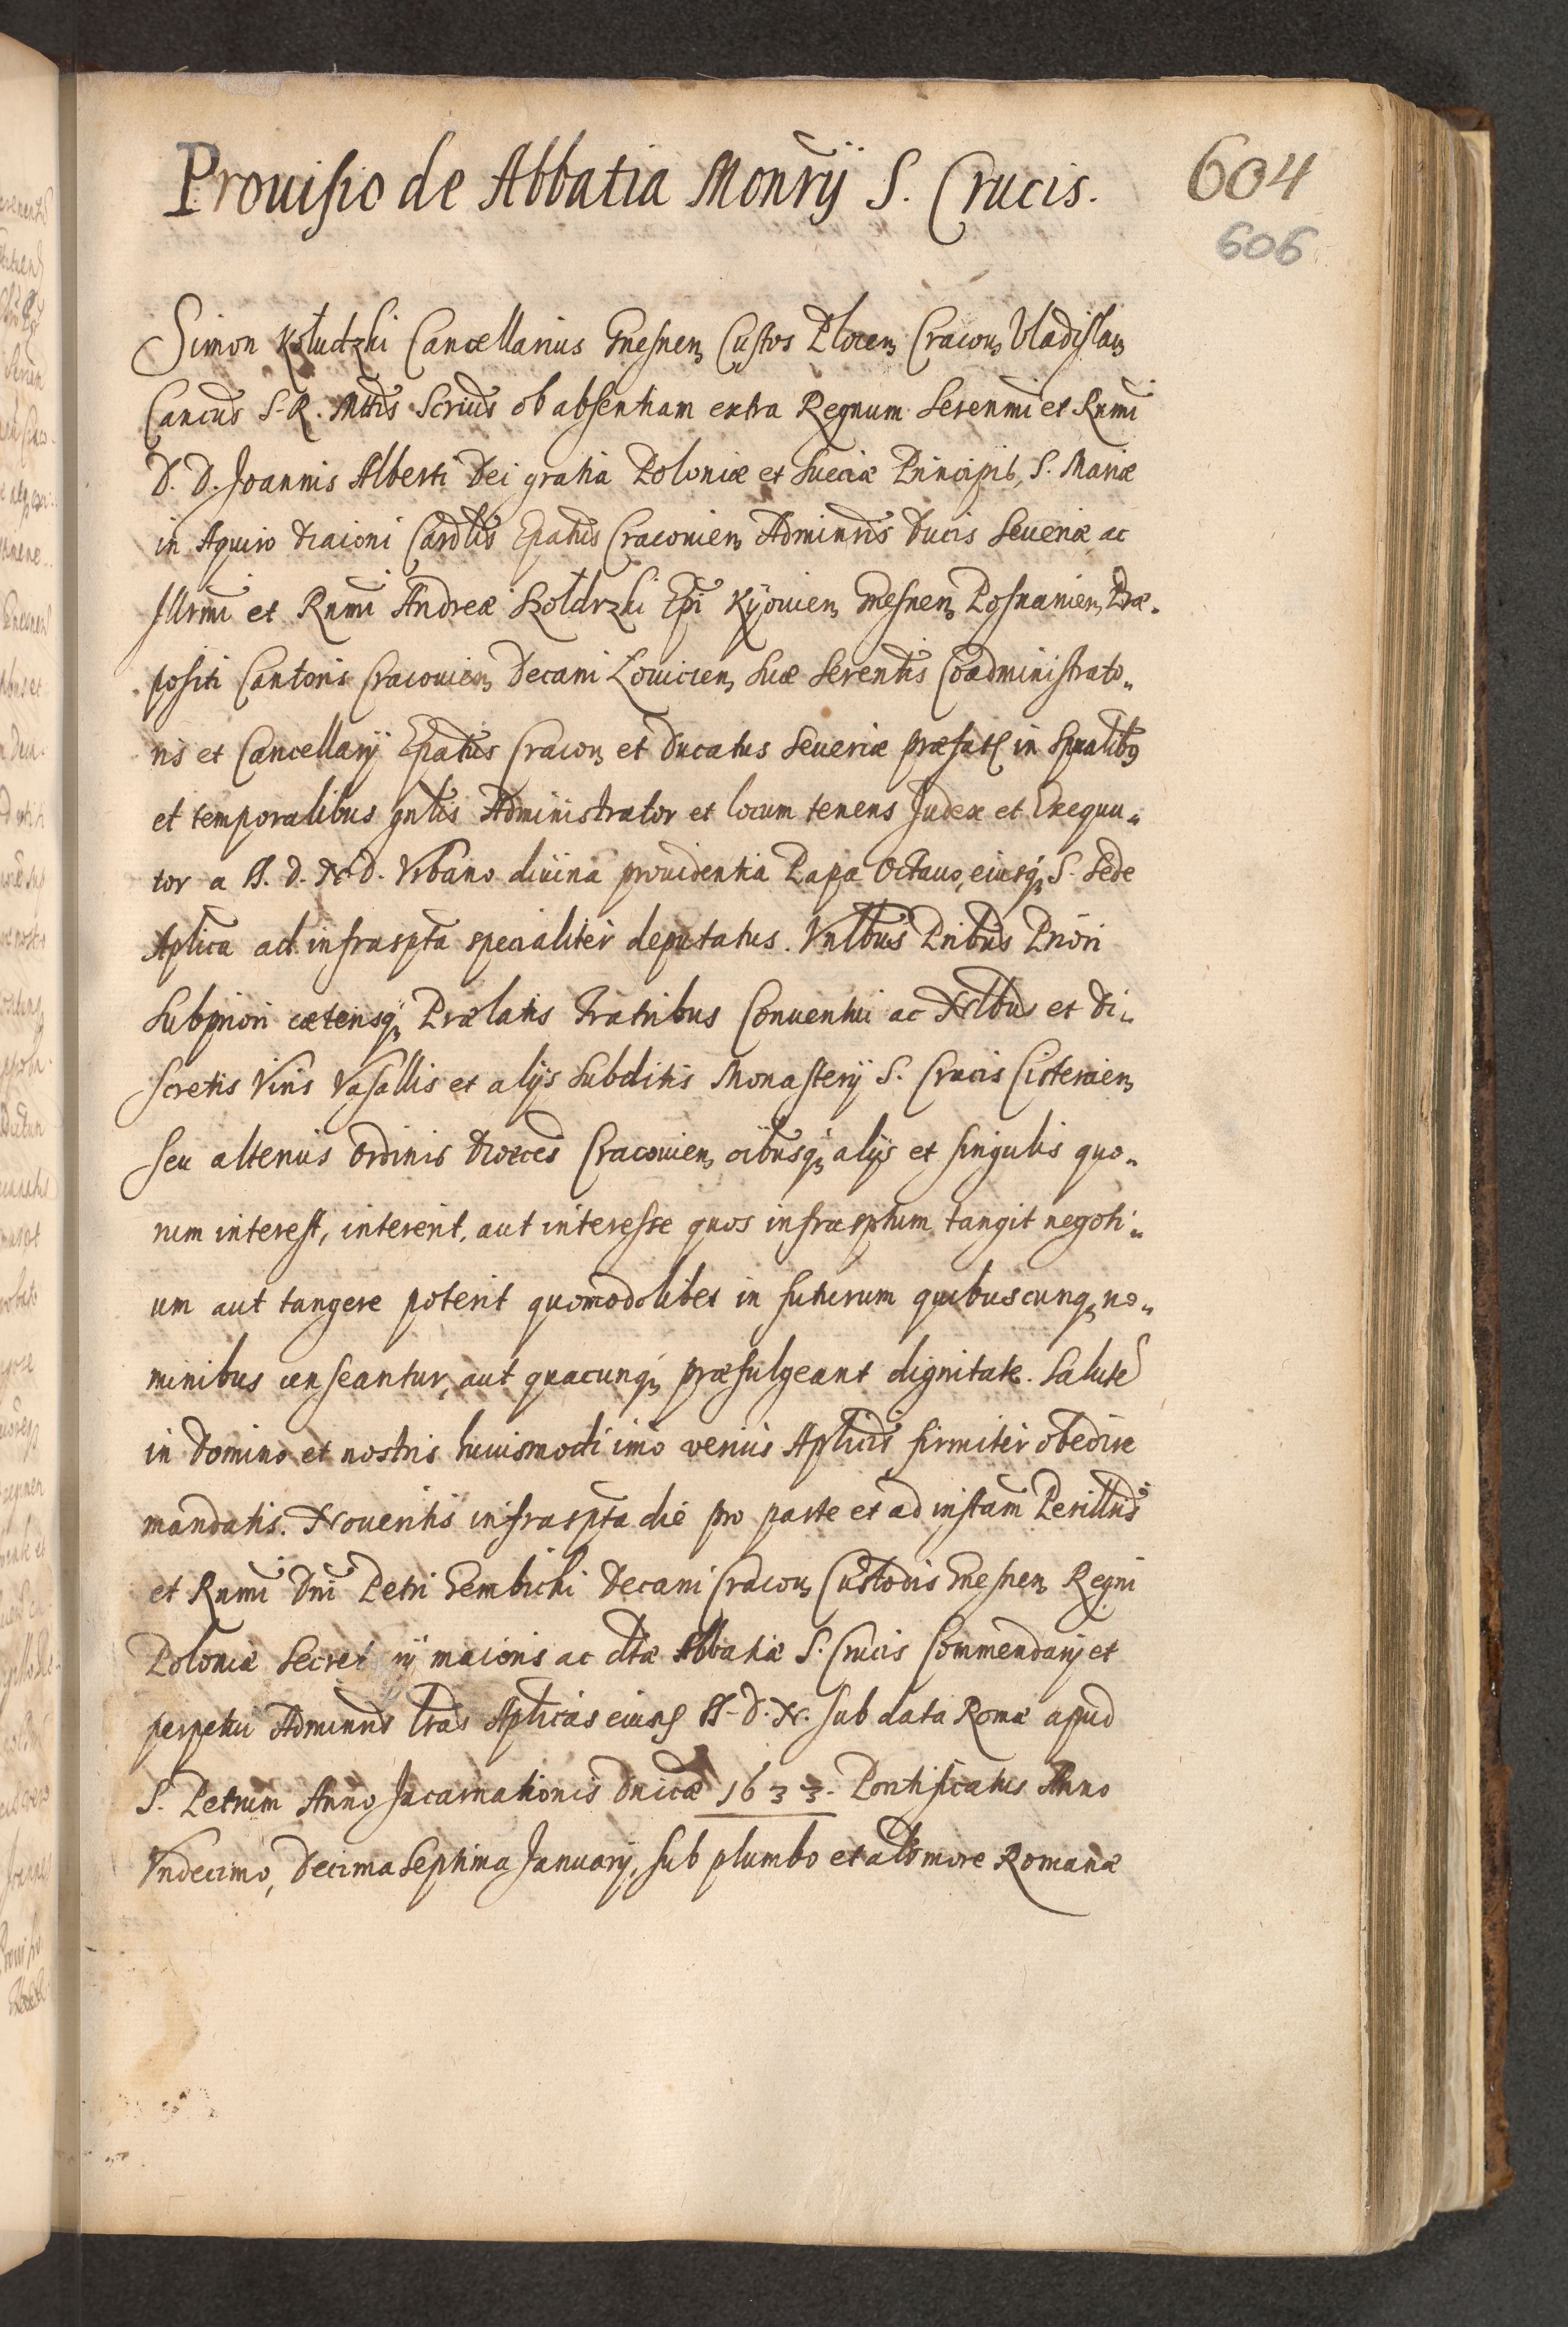 Prouisio de Abbatia Monrÿ S. Crucis.
604
606
Simon Kołudzki Cancellarius Gnesnen Custos Plocen Cracou Vladislau
Cancus S. R. Mttis Scrius ob absentiam extra Regnum Serenmi et Rnmi
D. D. Joannis Alberti Dei gratia Poloniæ et Sueciæ Principis, S. Mariæ
in Aquiro Diaconi Cardlis Epatus Cracouien Adminris Ducis Seueriæ ac
Illrmi et Rnmi Andreæ Szołdrzki Epi Kÿouien Gnesnen Posnanien Præ-
positi Cantoris Cracouien Decani Louicien Suæ Serentis Coadministrato-
ris et Cancellarij Epatus Cracou et Ducatus Seueriæ præfat in Spualibus
et temporalibus gnlis Administrator et locum tenens Judex et Exequu-
tor a S. D. N. D. Vrbano diuina prouidentia Papa Octauo, eiusq S. Sede
Aplica ad infraspta specialiter deputatus. Vnlbus Pribus Priori
Subpriori cæterisq Prælatis Fratribus Conuentui ac Nlbus et Di-
scretis Viris Vasallis et alijs Subditis Monasterij S. Crucis Cistercien
seu alterius Ordinis Dioeces Cracouien oibusq alijs et singulis quo-
rum interest, intererit, aut interesse quos infrasptum tangit negoti-
um aut tangere poterit quomodolibet in futurum quibuscunq no-
minibus censeantur, aut quacunq præfulgeant dignitate. Salute
in Domino et nostris huiusmodi imo verius Aplicis firmiter obedire
mandatis. Noueritis infraspta die pro parte et ad instam Perillris
et Rnmi Dni Petri Gembicki Decani Cracou Custodis Gnesnen Regni
Poloniæ Secret ij maioris ac dtæ Abbatiæ S. Crucis Commendarij et
perpetui Adminris lras Aplicas eiusd S. D. N. sub data Romæ apud
S. Petrum Anno Incarnationis Dnicæ 1633. Pontificatus Anno
Vndecimo, Decima Septima Januarij, sub plumbo et als more Romanæ